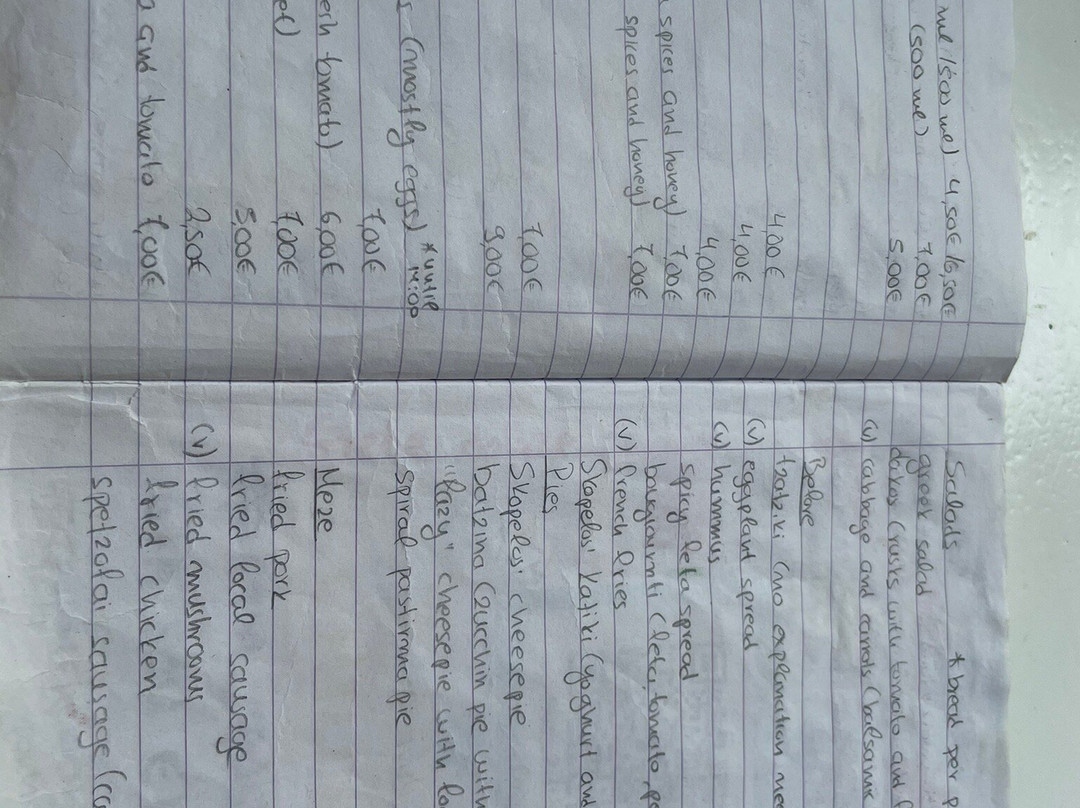 me/1500 me) 4,50€/6,50€
(500 me) 7,00€
5,00€
4,00€
4,00€
4,00€
spices and honey) 7,00€
spices and honey) 7,00€
7,00€
9,00€
(mostly eggs) *until 14:00
7,00€
esh tomato) 6,00€
et) 7,00€
5,00€
2,50€
a and tomato 7,00€
Salads *bread per p
greek salad
dakos (rusks with tomato and
(v) cabbage and carrots (balsamic
Before
tzatziki (no explanation nee
(v) eggplant spread
(v) hummus
spicy feta spread
bougiournti (feta, tomato, pe
(v) french fries
Skopelos' katiki (yoghurt and
Pies
Skopelos' cheesepie
batzina (zucchin pie with
"lazy" cheesepie with fe
spiral pastirma pie
Meze
fried pork
fried local sausage
(v) fried mushrooms
fried chicken
spetzofai sausage (co